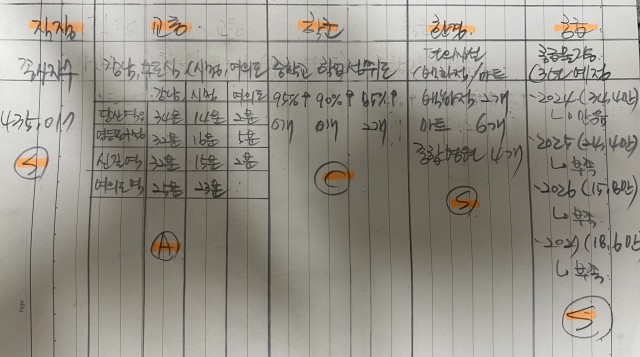 직장 교통 학군 환경 공급
종사자수
강남, 주요업무지구 (시청, 여의도
중학교 학업성취도
편의시설
(백화점/마트
공급물량
(3년 예정
강남 시청 여의도
당산역 34분 14분 2분
영등포구청역 32분 16분 5분
신길역 32분 15분 2분
여의도역 25분 23분
95%↑ 90%↑ 85%↑
0개 0개 2개
백화점 2개
마트 6개
종합병원 4개
435,017
-2024 (34.4만)
↳
-2025 (24.4만)
↳ 부족
-2026 (15.8만)
↳ 부족
-2027 (18.6만
↳ 부족
S
A
C
S
S